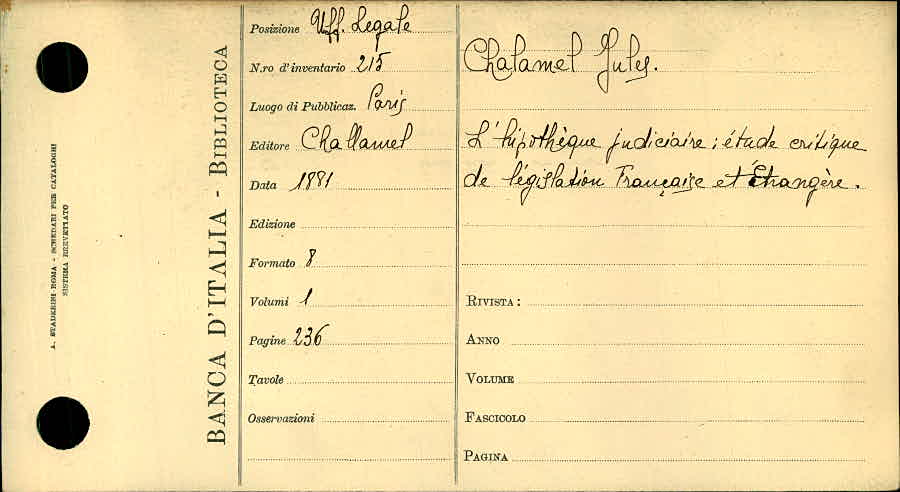 A. STADERINI ROMA - SCHEDARI PER CATALOGHI
SISTEMA BREVETTATO
BANCA D'ITALIA - BIBLIOTECA
Posizione Uff. Legale
N.ro d'inventario 215
Luogo di Pubblicaz. Paris
Editore Challamel
Data 1881
Edizione
Formato 8
Volumi 1
Pagine 236
Tavole
Osservazioni
Chalamel Jules.
L'hipothèque judiciaire; étude critique
de législation Française et Étrangère.
RIVISTA:
ANNO
VOLUME
FASCICOLO
PAGINA